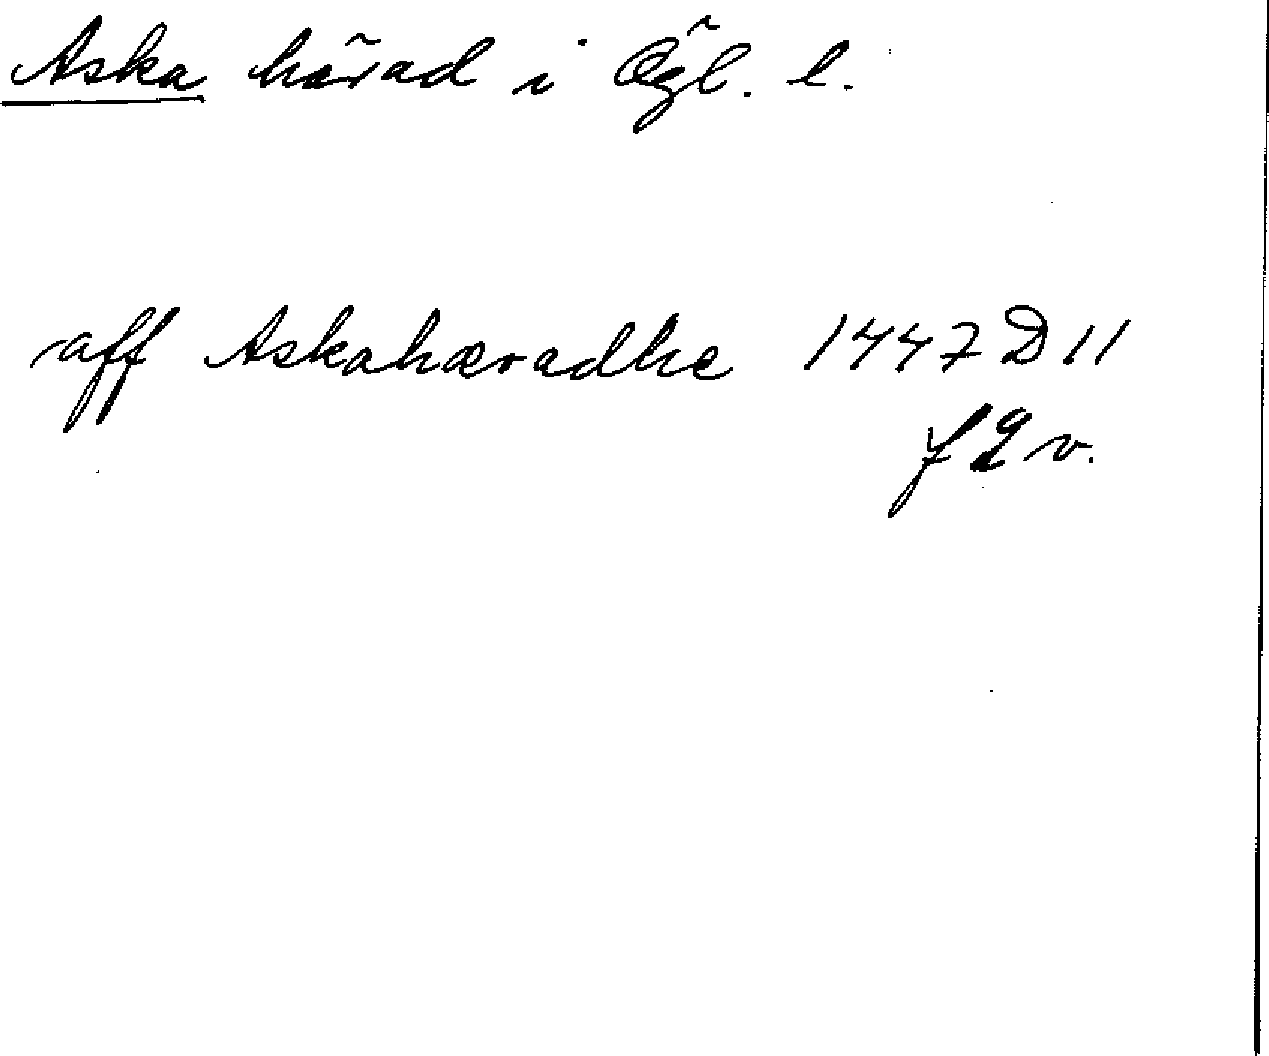 Aska härad i Ögl. l.
aff Askahæradhe 1447 D 11
f 2 v.